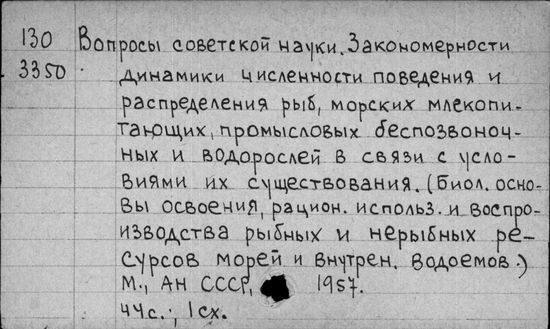 130 Вопросы советской науки. Закономерности
3350 динамики численности поведения и
распределения рыб, морских млекопи-
тающих, промысловых беспозвоноч-
ных и водорослей в связи с усло-
виями их существования. (Биол. осно-
вы освоения, рацион. использ. и воспро-
изводства рыбных и нерыбных ре-
сурсов морей и внутрен. водоемов.)
М., АН СССР, 1957.
44с.; 1сх.